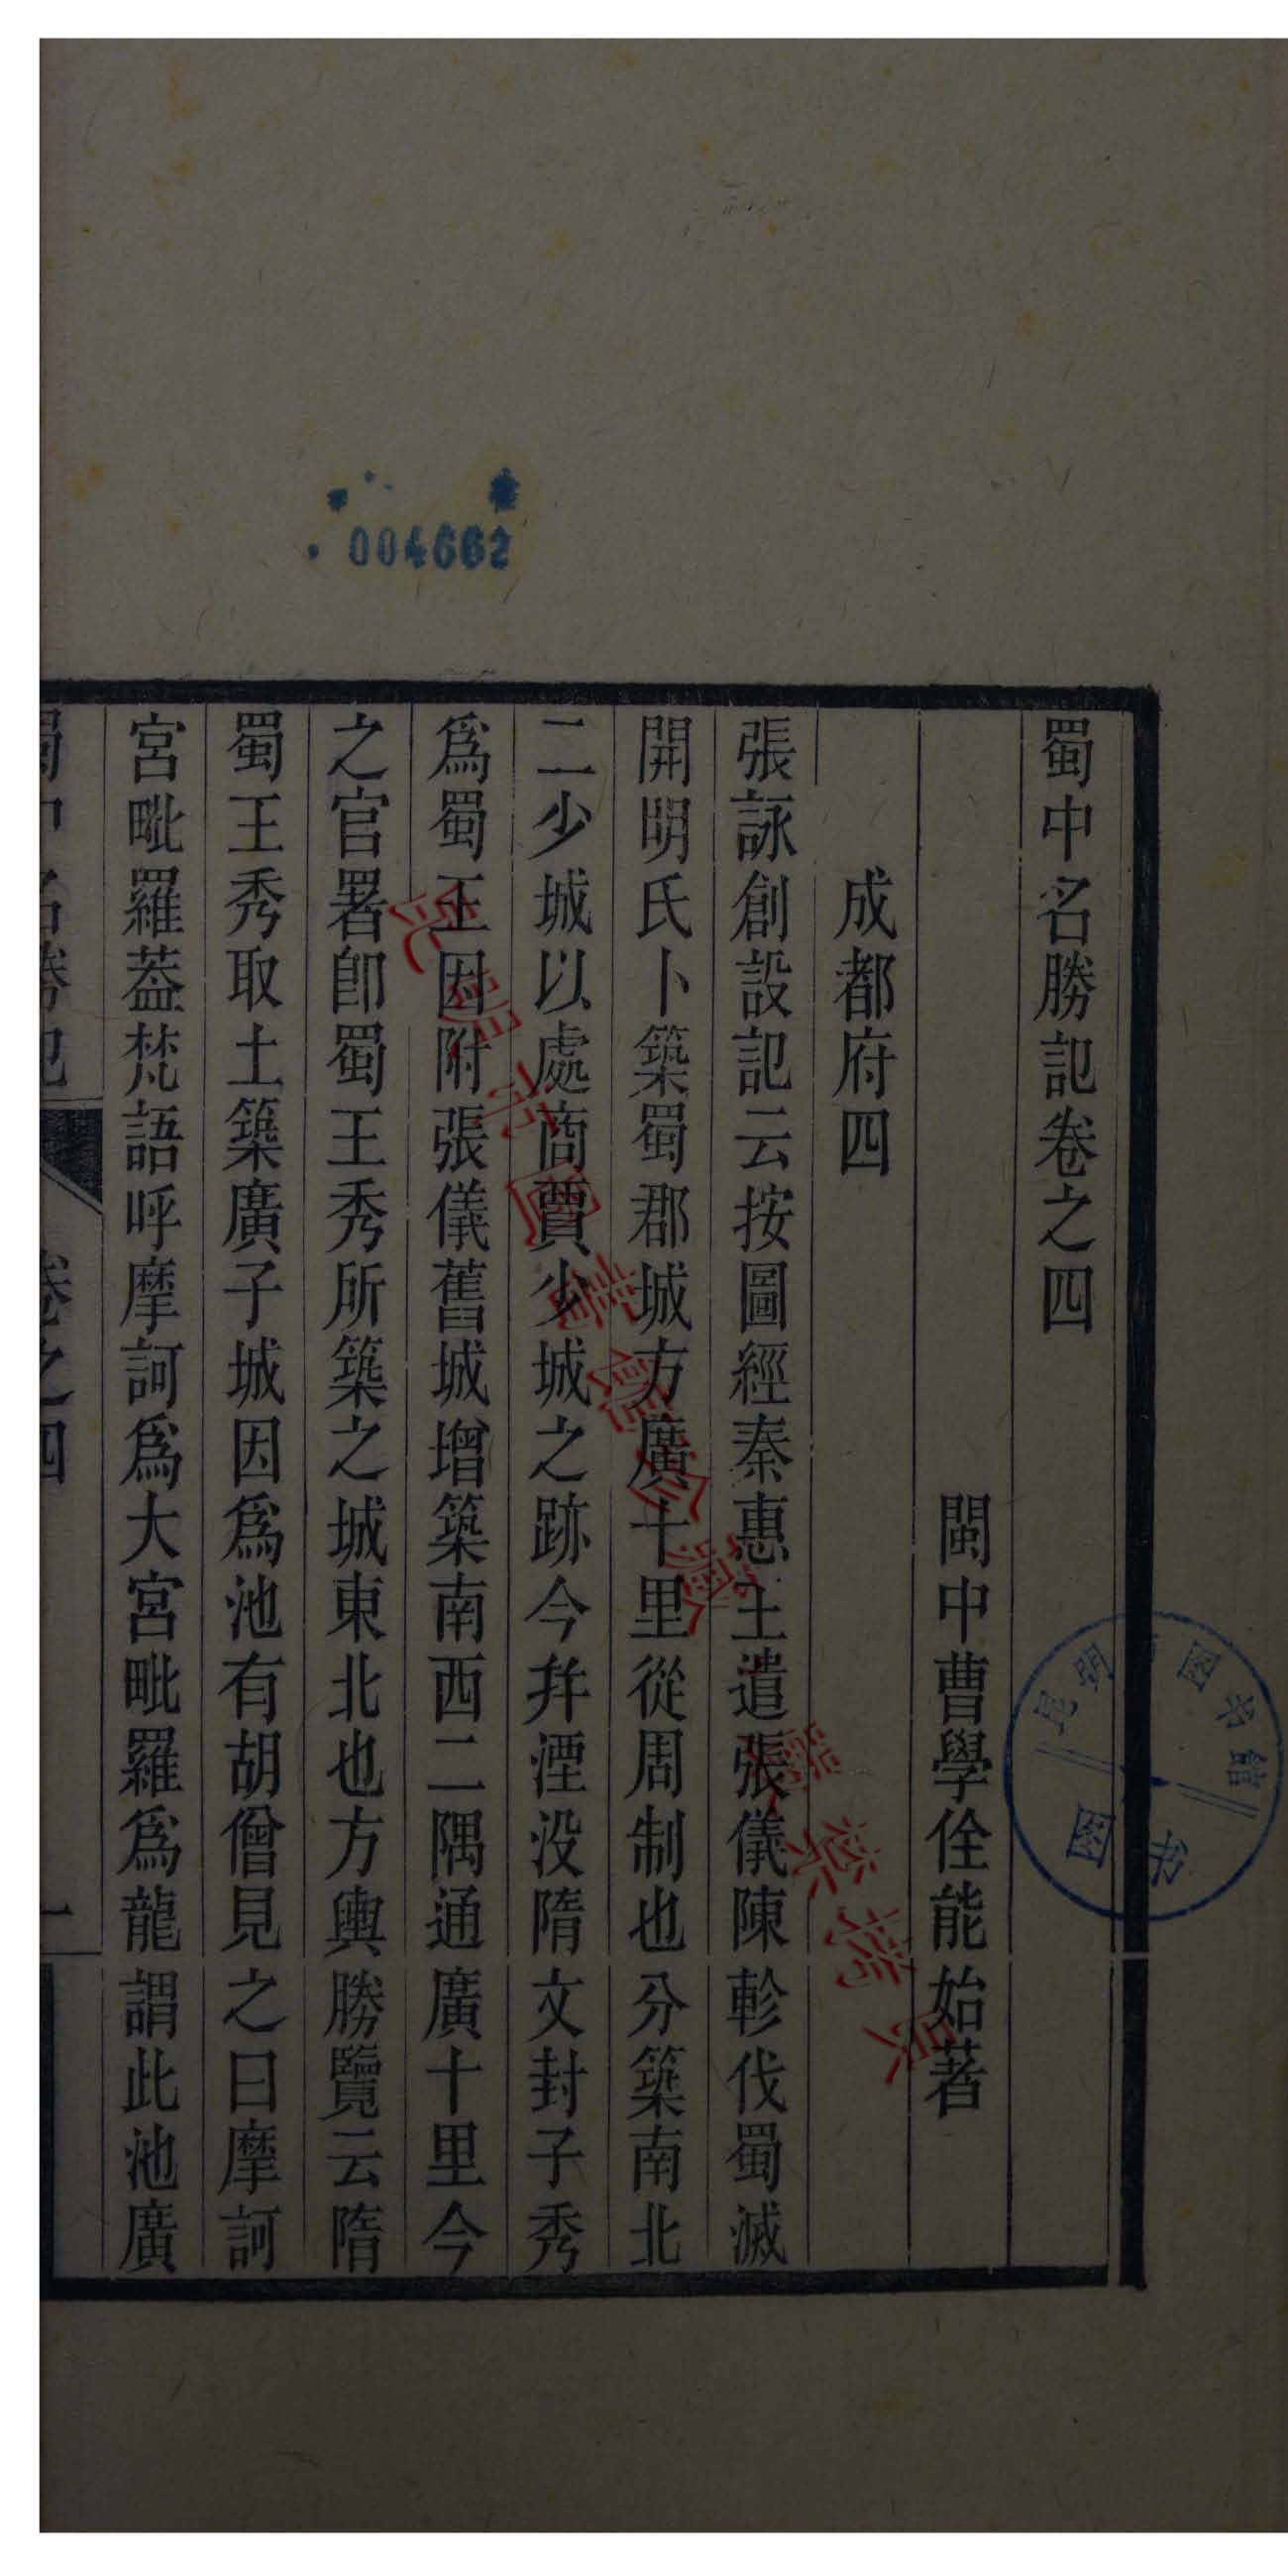 蜀中名勝記卷之四
閩中曹學佺能始著
成都府四
張詠創設記云按圖經秦惠王遣張儀陳軫伐蜀滅
開明氏卜築蜀郡城方廣十里從周制也分築南北
二少城以處商賈少城之跡今幷湮没隋文封子秀
爲蜀王因附張儀舊城增築南西二隅通廣十里今
之官署卽蜀王秀所築之城東北也方輿勝覽云隋
蜀王秀取土築廣子城因爲池有胡僧見之曰摩訶
宮毗羅葢梵語呼摩訶爲大宮毗羅爲龍謂此池廣
蜀中名勝記 卷之四 一
004662
昆明市图书馆
图书
昆明市圖書館珍藏
嚴禁撈頁